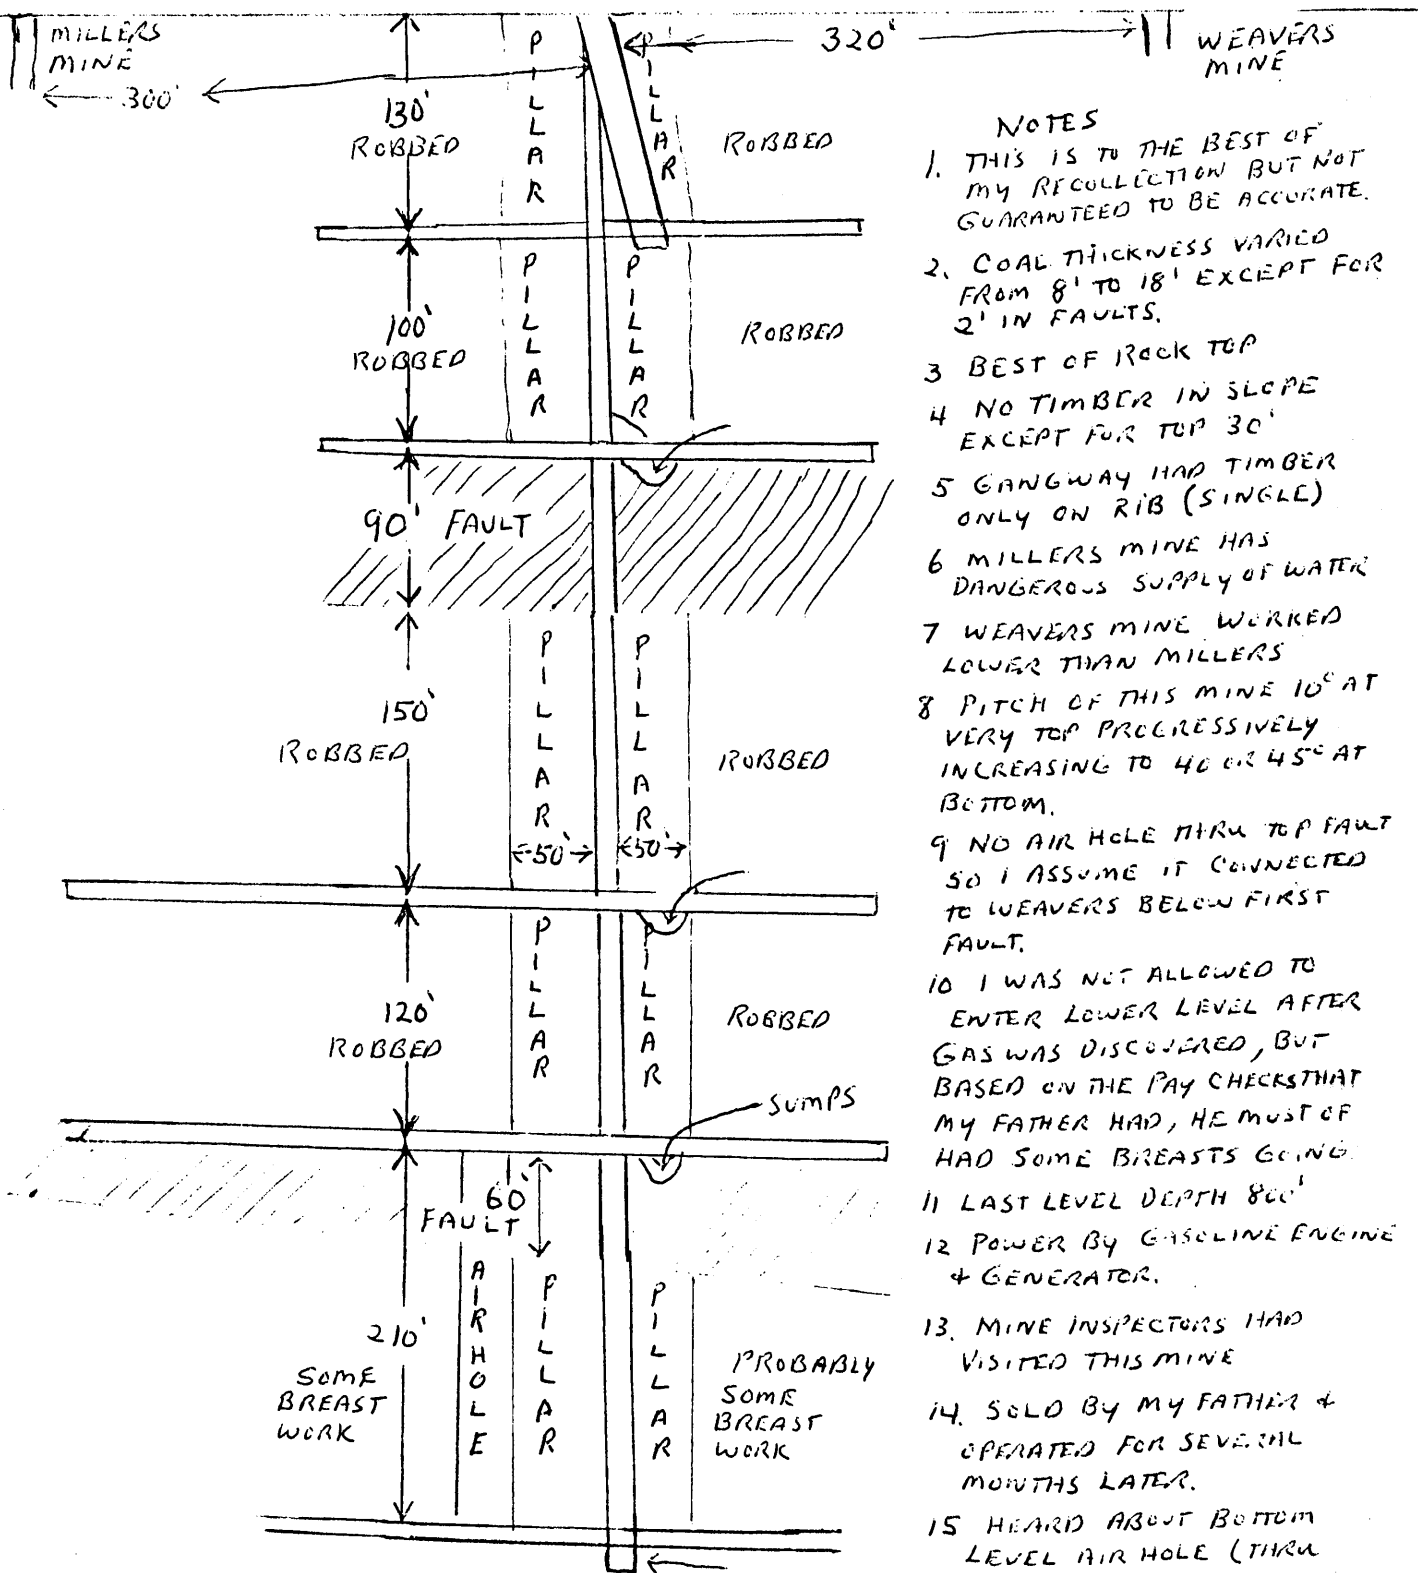 MILLERS
MINE
300'
320'
WEAVERS
MINE
130'
ROBBED
PILLAR
PILLAR
ROBBED
100'
ROBBED
PILLAR
PILLAR
ROBBED
90' FAULT
150'
ROBBED
PILLAR
PILLAR
ROBBED
50'
50'
120'
ROBBED
PILLAR
PILLAR
ROBBED
SUMPS
60'
FAULT
210'
SOME
BREAST
WORK
AIRHOLE
PILLAR
PILLAR
PROBABLY
SOME
BREAST
WORK
NOTES
1. THIS IS TO THE BEST OF
MY RECOLLECTION BUT NOT
GUARANTEED TO BE ACCURATE.
2. COAL THICKNESS VARIED
FROM 8' TO 18' EXCEPT FOR
2' IN FAULTS.
3 BEST OF ROCK TOP
4 NO TIMBER IN SLOPE
EXCEPT FOR TOP 30'
5 GANGWAY HAD TIMBER
ONLY ON RIB (SINGLE)
6 MILLERS MINE HAS
DANGEROUS SUPPLY OF WATER
7 WEAVERS MINE WORKED
LOWER THAN MILLERS
8 PITCH OF THIS MINE 10° AT
VERY TOP PROGRESSIVELY
INCREASING TO 40 OR 45° AT
BOTTOM.
9 NO AIR HOLE THRU TOP FAULT
SO I ASSUME IT CONNECTED
TO WEAVERS BELOW FIRST
FAULT.
10 I WAS NOT ALLOWED TO
ENTER LOWER LEVEL AFTER
GAS WAS DISCOVERED, BUT
BASED ON THE PAY CHECKS THAT
MY FATHER HAD, HE MUST OF
HAD SOME BREASTS GOING.
11 LAST LEVEL DEPTH 800'
12 POWER BY GASOLINE ENGINE
+ GENERATOR.
13. MINE INSPECTORS HAD
VISITED THIS MINE
14. SOLD BY MY FATHER +
OPERATED FOR SEVERAL
MONTHS LATER.
15 HEARD ABOUT BOTTOM
LEVEL AIR HOLE (THRU